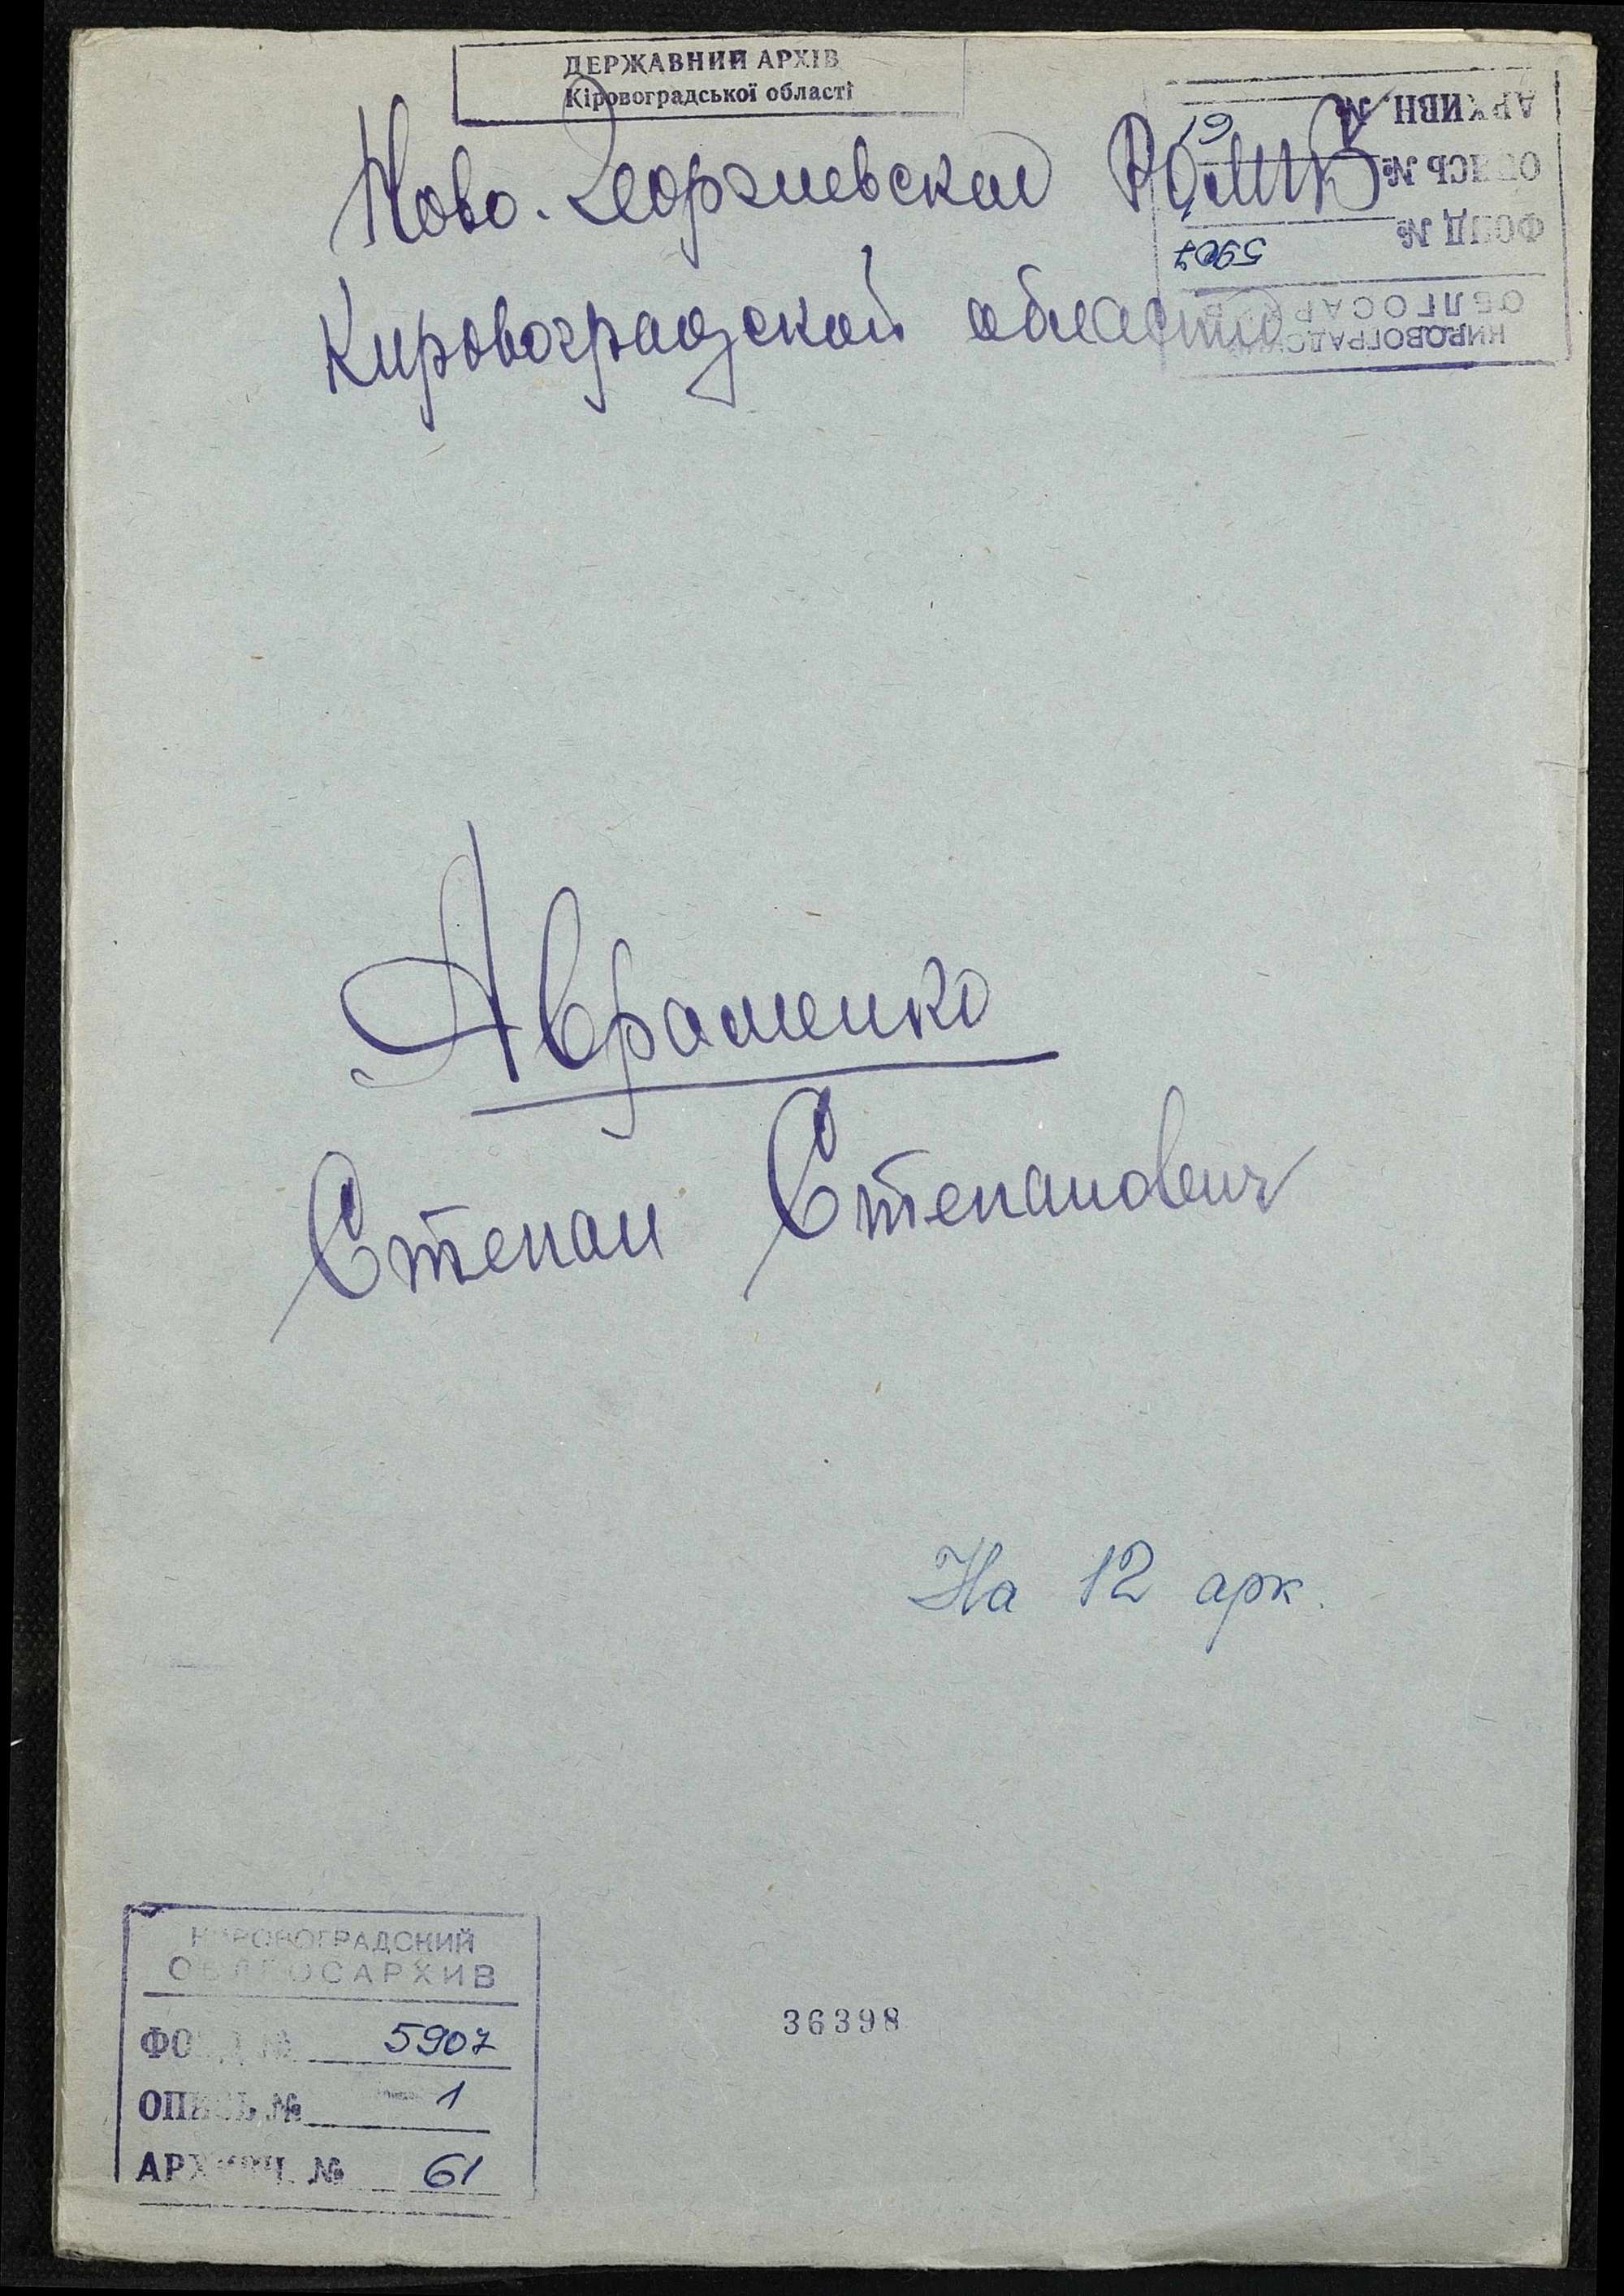 ДЕРЖАВНИЙ АРХІВ
Кіровоградської області
Ново. Георгиевское
Кировоградской области
АРХИВН. № 61
ОПИСЬ №
ФОНД № 5907
ОБЛГОСАР
КИРОВОГРАДСКИЙ
Авраменко
Степан Степанович
На 12 арк.
КИРОВОГРАДСКИЙ
ОБЛГОСАРХИВ
ФОНД № 5907
ОПИСЬ № 1
АРХИВН. № 61
36398